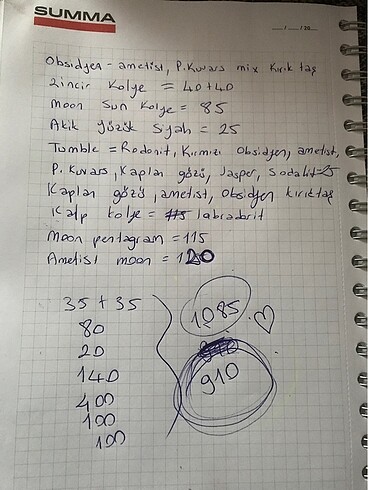 SUMMA
__/__/20__
Obsidyen - ametist, P.Kuvars mix kırık taş
zincir kolye = 40+40
Moon Sun Kolye = 85
Akik yüzük siyah = 25
Tumble = Rodonit, Kırmızı Obsidyen, ametist,
P. Kuvars, Kaplan gözü, Jasper, Sodalit=25
Kaplan gözü, ametist, Obsidyen kırıktaş
Kalp kolye = labradorit
Moon pentagram = 115
Ametist moon = 120
35 + 35
80
20
140
400
100
100
1085
910